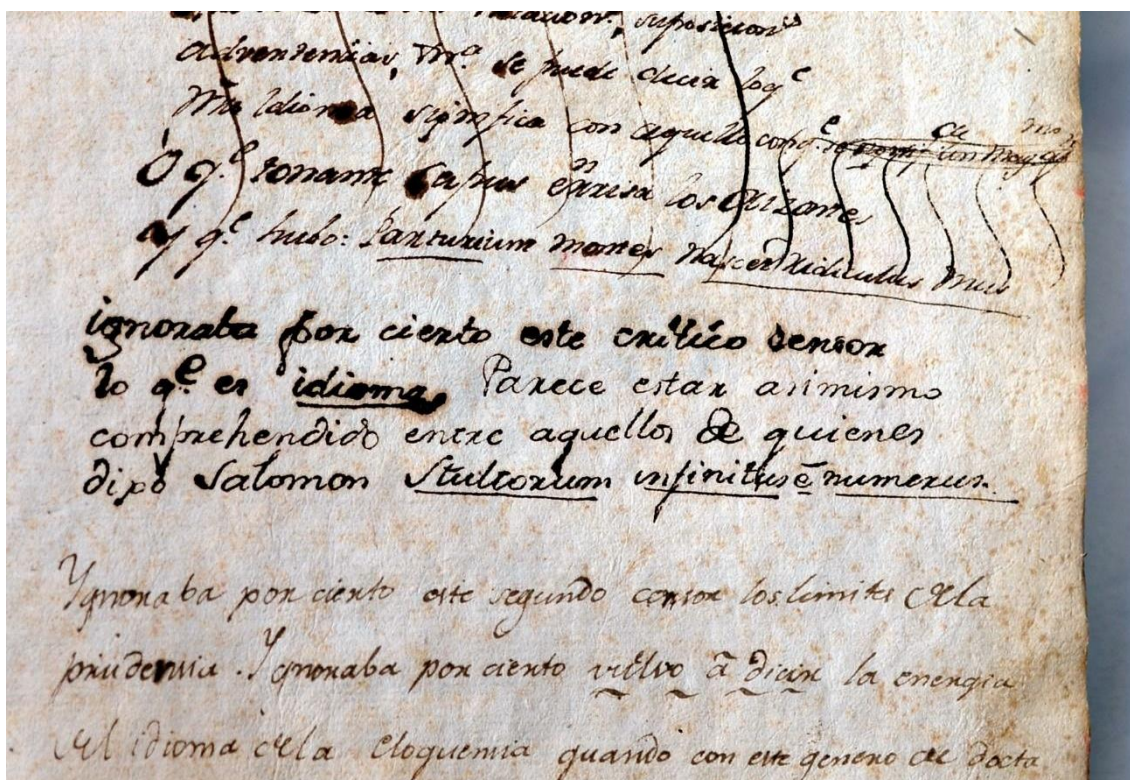 suposicion.s
advertencias, se puede decir lo q.e
Idioma significa con aquello con q.e
Ó q.e tonante los
ay q.e hubo: Parturium montes nascet Ridiculus mus
ignoraba por cierto este critico censor
lo q.e es idioma, Parece estar asimismo
comprehendido entre aquellos de quienes
dixo Salomon Stultorum infinitus ē numerus.
Ygnoraba por cierto este segundo censor los limites dela
prudencia. Ygnoraba por cierto vuelvo â dicir la energia
del idioma dela eloquencia quando con este genero de docta